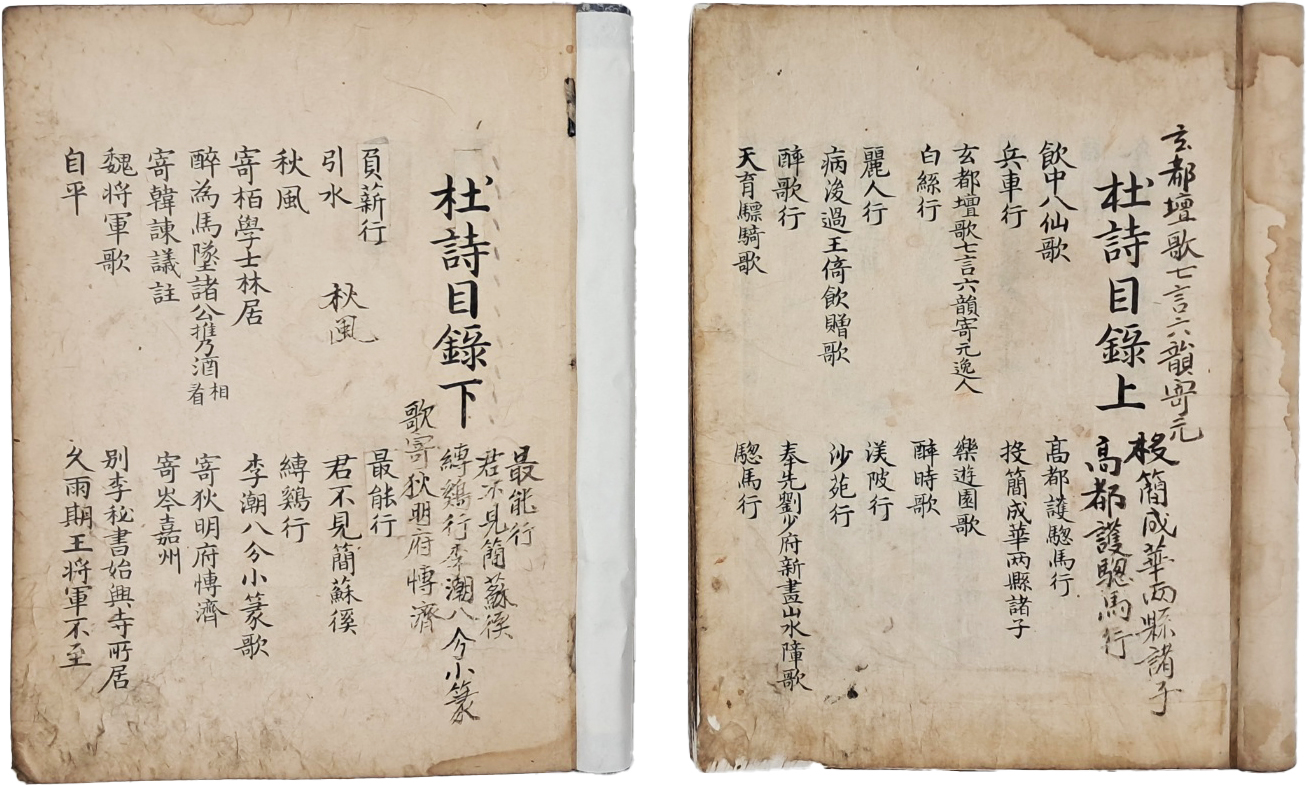 玄都壇歌七言六韻寄元
投簡成華兩縣諸子
杜詩目錄上
高都護驄馬行
飲中八仙歌
高都護驄馬行
兵車行
投簡成華兩縣諸子
玄都壇歌七言六韻寄元逸人
樂遊園歌
白絲行
醉時歌
麗人行
渼陂行
病後過王倚飲贈歌
沙苑行
醉歌行
奉先劉少府新畫山水障歌
天育驃騎歌
驄馬行
最能行
君不見簡蘇徯
杜詩目錄下
縛鷄行李潮八分小篆
歌寄狄明府愽濟
負薪行
最能行
引水
秋風
君不見簡蘇徯
秋風
縛鷄行
寄栢學士林居
李潮八分小篆歌
醉為馬墜諸公携酒相看
寄狄明府愽濟
寄韓諫議註
寄岑嘉州
魏將軍歌
別李秘書始興寺所居
自平
久雨期王將軍不至